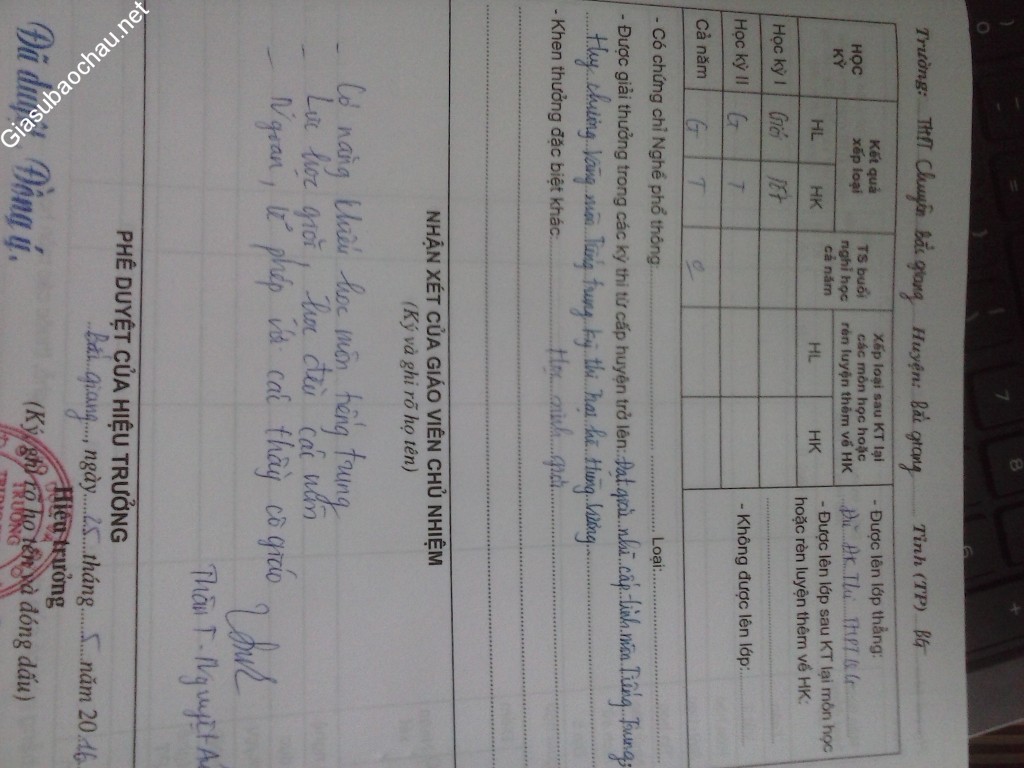 Trường: THPT Chuyên Bắc giang Huyện: Bắc giang Tỉnh (TP) BG
HỌC KỲ
Kết quả xếp loại
TS buổi nghỉ học cả năm
Xếp loại sau KT lại các môn học hoặc rèn luyện thêm về HK
HL HK HL HK
Học kỳ I Giỏi Tốt
Học kỳ II G T
Cả năm G T 0
- Được lên lớp thẳng:
Đủ ĐK Thi THPT QG
- Được lên lớp sau KT lại môn học
hoặc rèn luyện thêm về HK:
- Không được lên lớp:
- Có chứng chỉ Nghề phổ thông: Loại:
- Được giải thưởng trong các kỳ thi từ cấp huyện trở lên: Đạt giải nhì cấp tỉnh môn Tiếng Trung;
Huy chương Vàng môn Tiếng trung kỳ thi trại hè Hùng Vương
- Khen thưởng đặc biệt khác: Học sinh giỏi
NHẬN XÉT CỦA GIÁO VIÊN CHỦ NHIỆM
(Ký và ghi rõ họ tên)
- Có năng khiếu học môn tiếng trung
Lực học giỏi, học đều các môn
- Ngoan, lễ phép với các thầy cô giáo
Thân T. Nguyệt Án
PHÊ DUYỆT CỦA HIỆU TRƯỞNG
Bắc giang, ngày 25 tháng 5 năm 2016
(Ký, ghi rõ họ tên và đóng dấu)
Hiệu trưởng
TRƯỜNG
Đã duyệt Đồng ý.
Giasubaochau.net